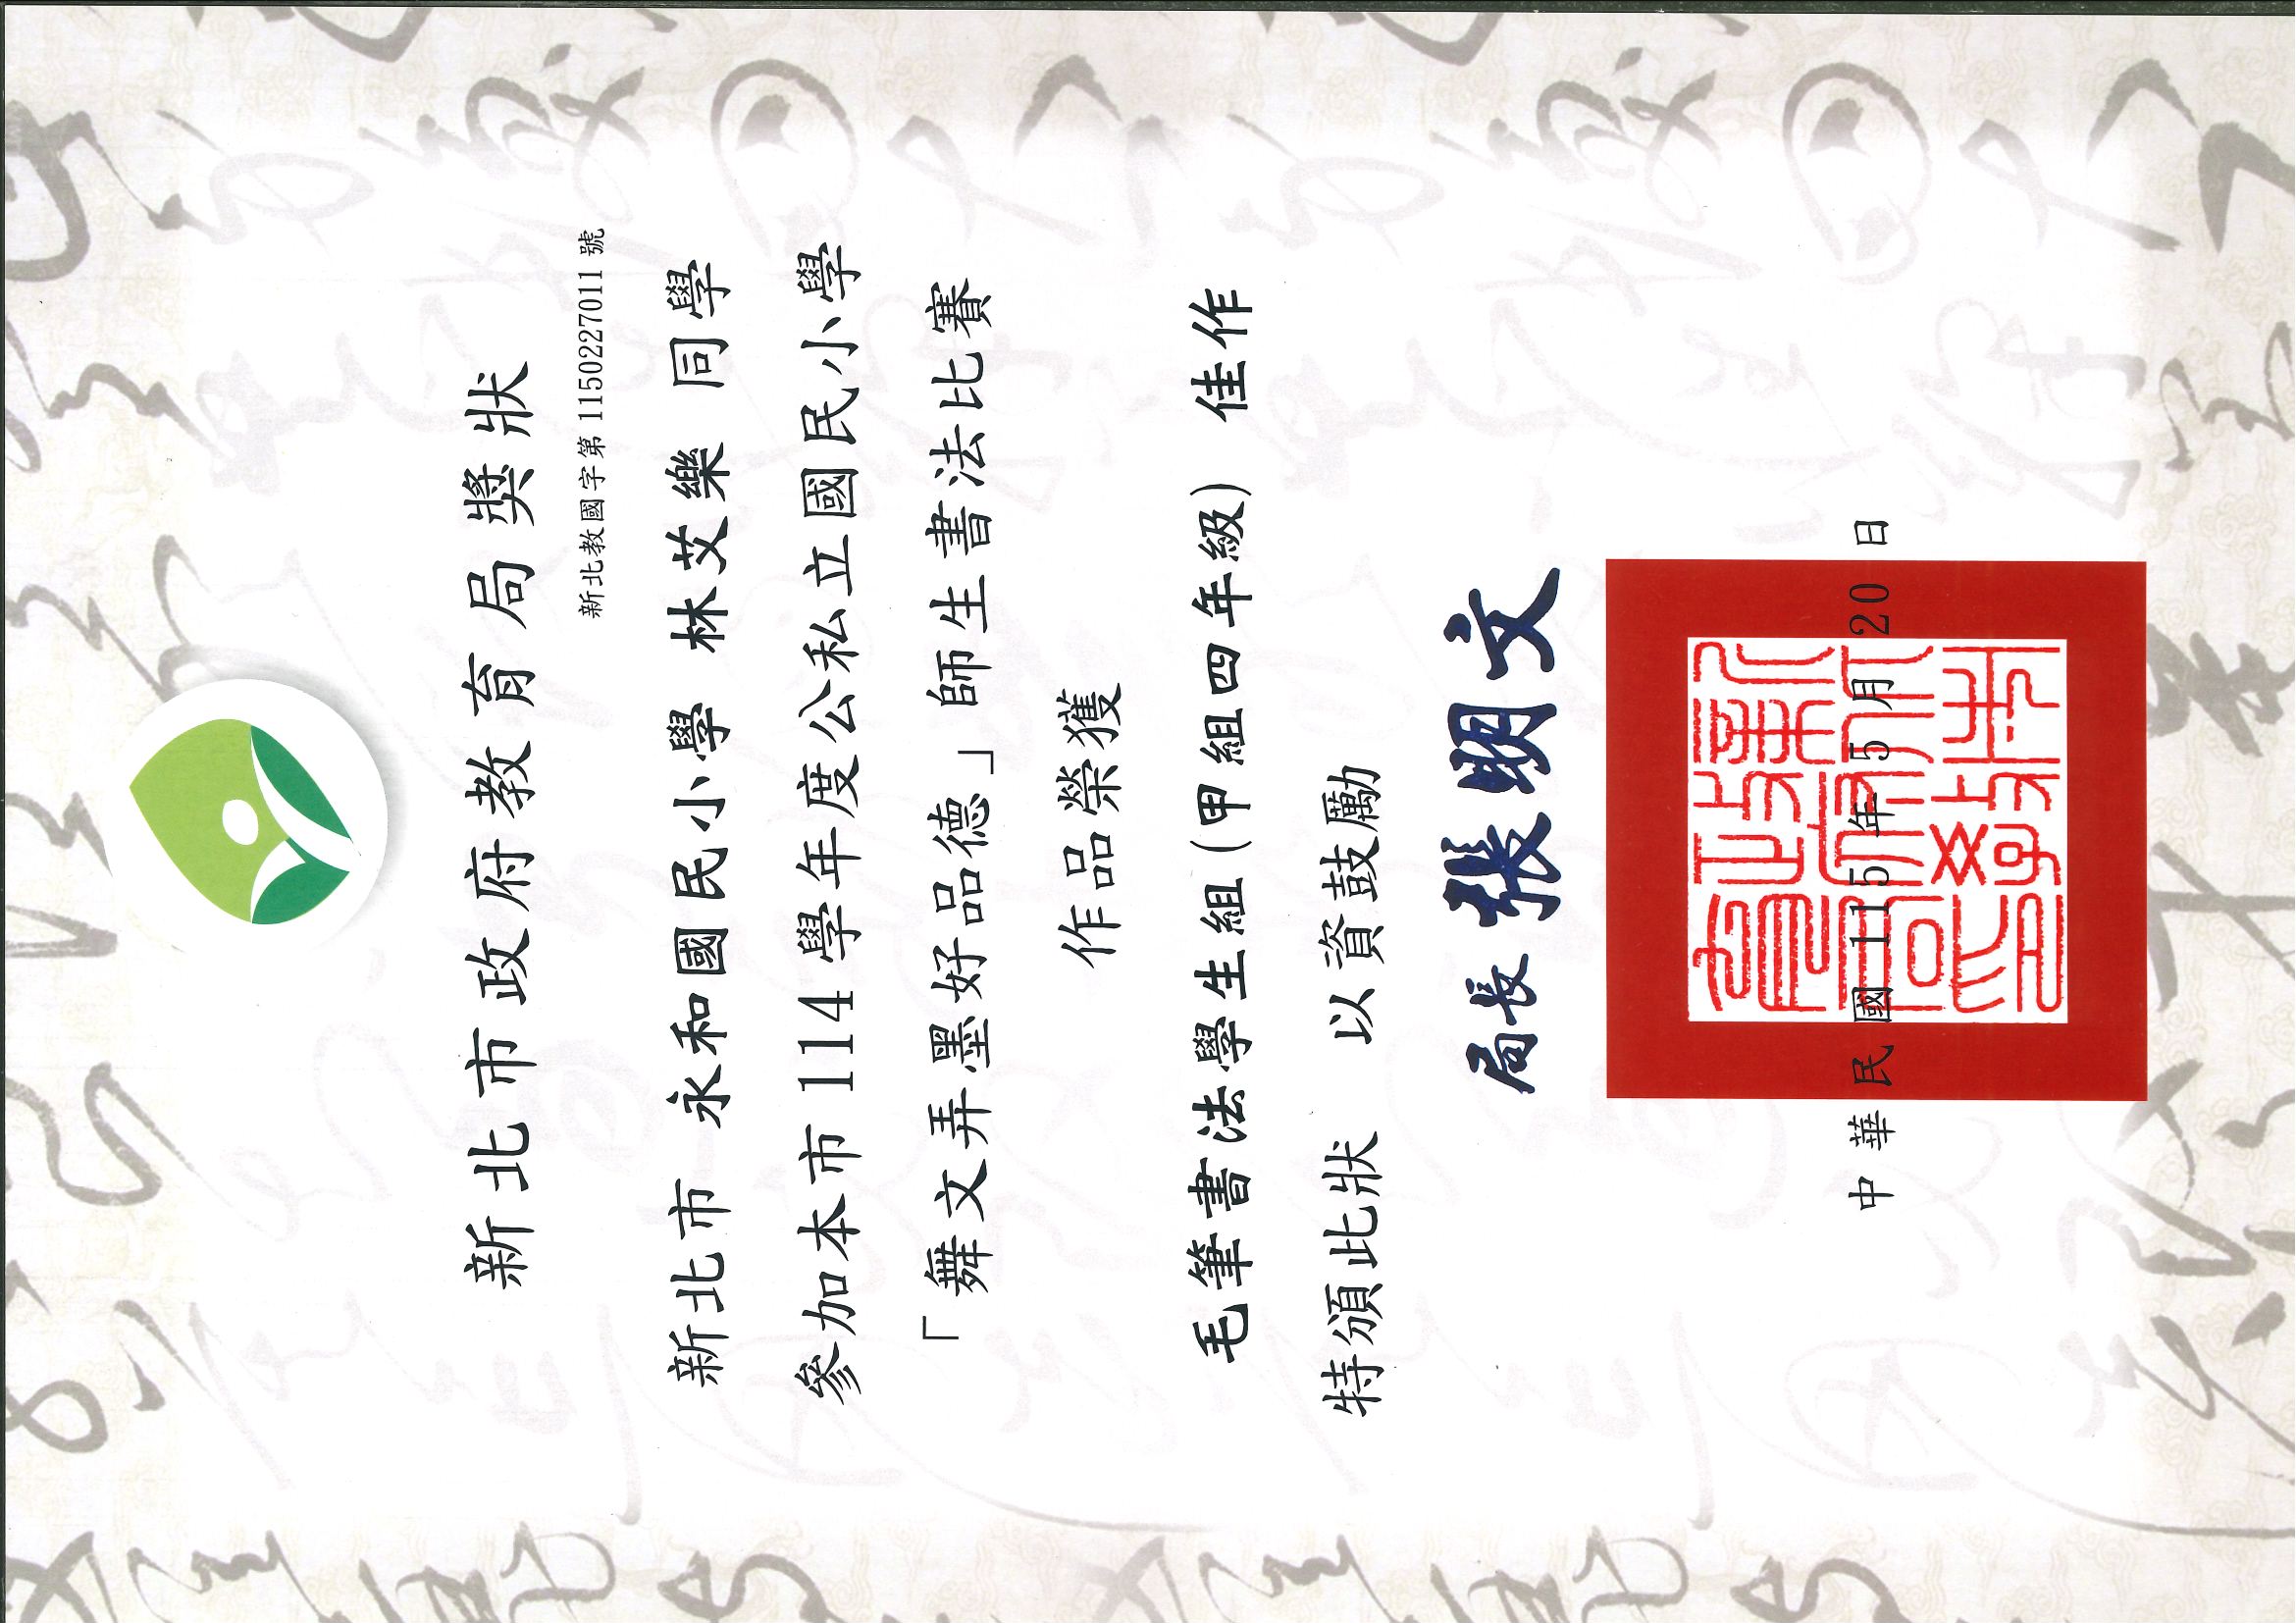 新北市政府教育局獎狀
新北教國字第 1150227011 號
新北市 永和國民小學 林艾樂 同學
參加本市114學年度公私立國民小學
「舞文弄墨好品德」師生書法比賽
作品榮獲
毛筆書法學生組(甲組四年級) 佳作
特頒此狀 以資鼓勵
局長 張明文
中華民國115年5月20日